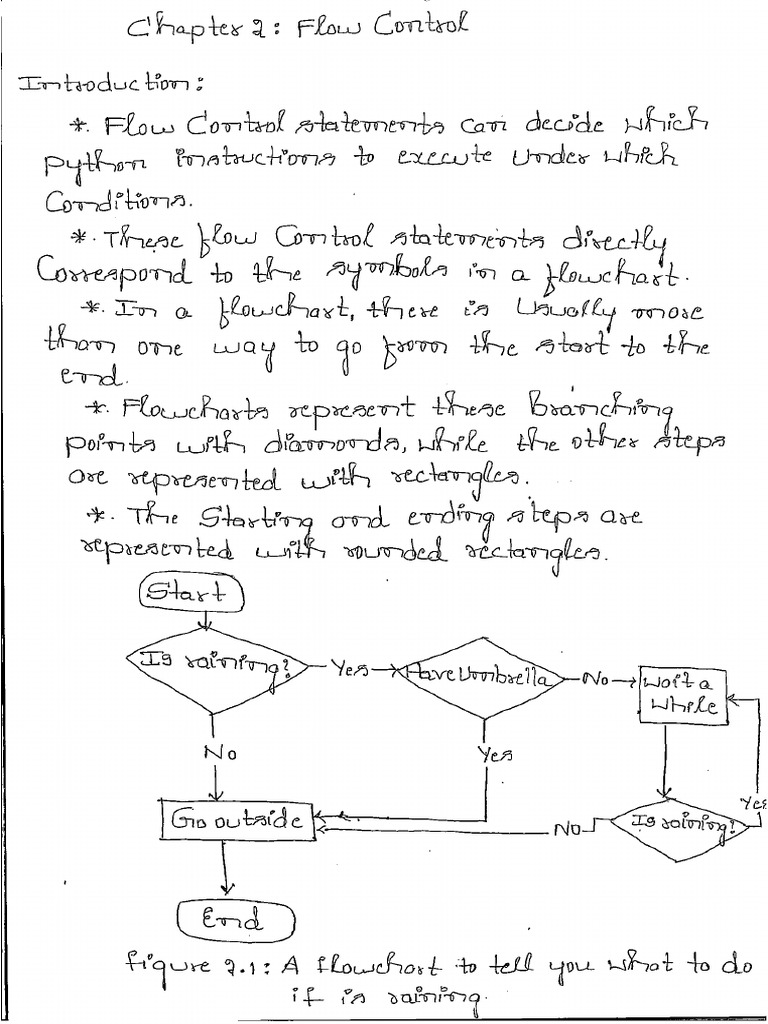 Chapter 2: Flow Control
Introduction:
*. Flow Control statements can decide which
python instructions to execute under which
Conditions.
*. These flow Control statements directly
Correspond to the symbols in a flowchart.
*. In a flowchart, there is Usually more
than one way to go from the start to the
end.
*. Flowcharts represent these Branching
points with diamonds, while the other steps
are represented with rectangles.
*. The Starting and ending steps are
represented with rounded rectangles.
Start
Is raining?
Yes
Have Umbrella
No
Wait a
while
No
Yes
Yes
Go outside
No
Is raining?
End
figure 2.1: A flowchart to tell you what to do
if is raining.